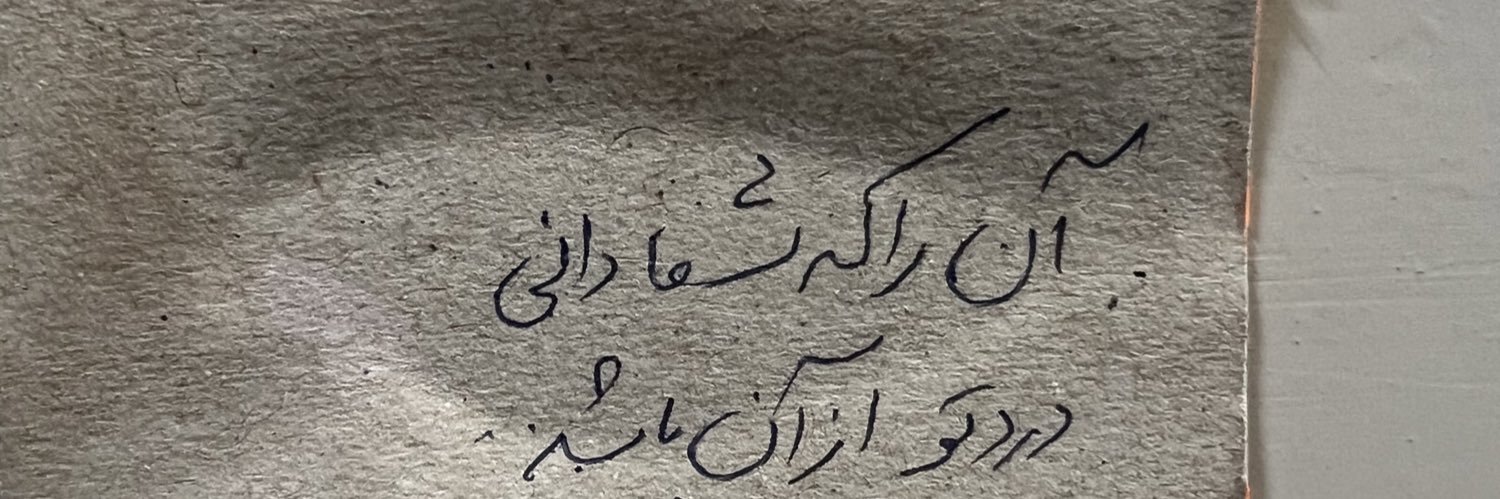 آن را که شفا دانی
درد تو از آن باشد